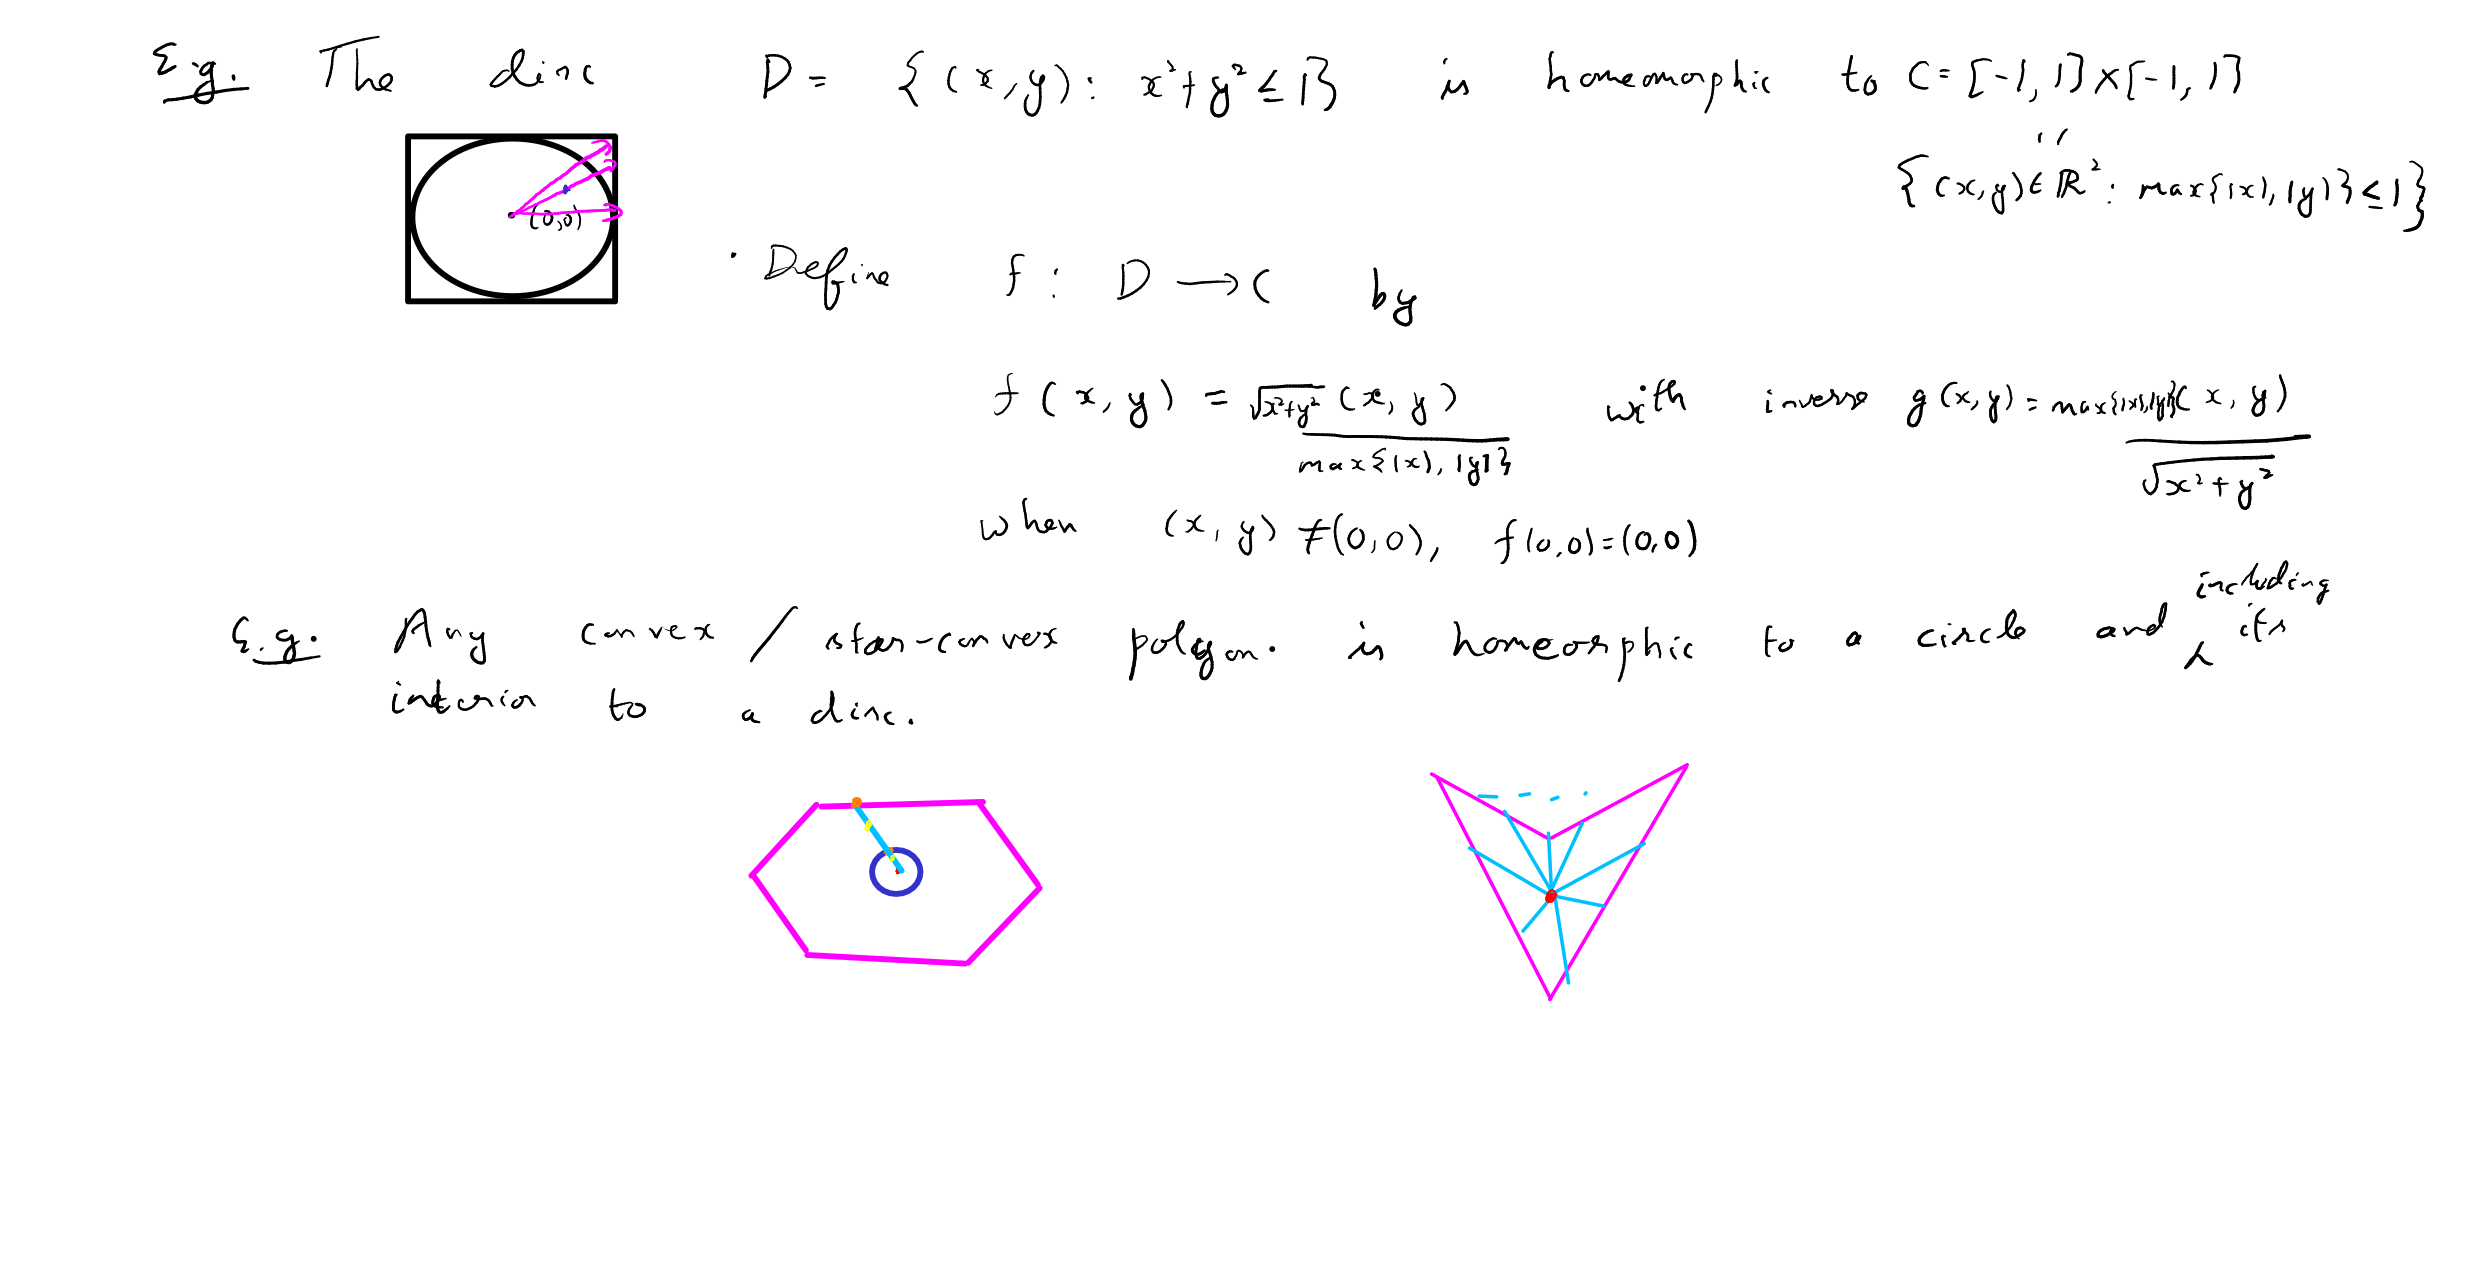 E.g. The disc D = {(x,y): x²+y² ≤ 1} is homeomorphic to C = [-1,1]×[-1,1]
"
{(x,y)∈ℝ²: max{|x|,|y|} ≤ 1}
(0,0)
· Define f: D → C by
f(x,y) = √(x²+y²) (x,y) / max{|x|,|y|} with inverse g(x,y) = max{|x|,|y|}(x,y) / √(x²+y²)
when (x,y) ≠ (0,0), f(0,0)=(0,0)
E.g. Any convex / star-convex polygon. is homeorphic to a circle and including its
interior to a disc.